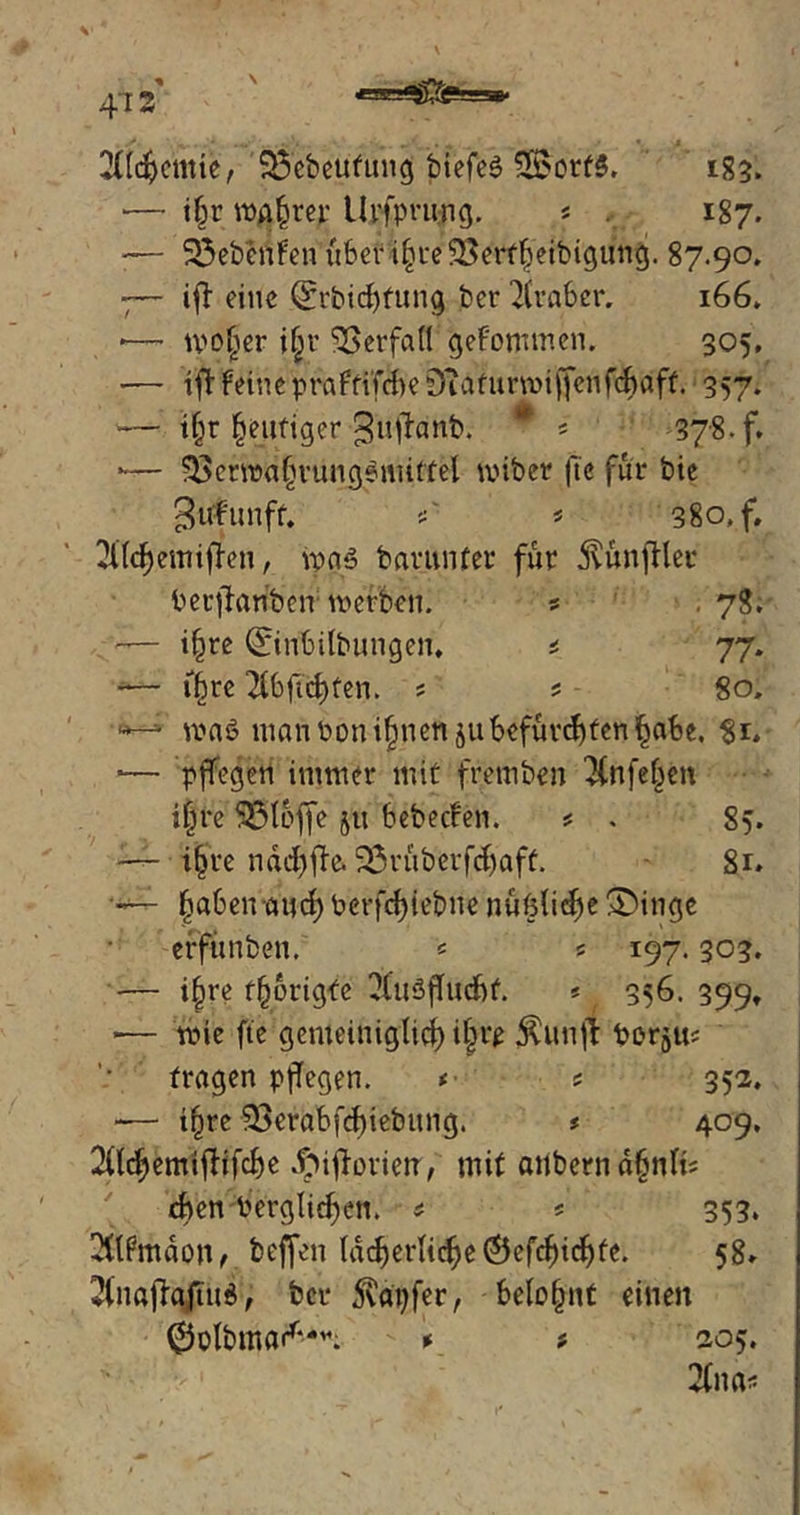 412
Alchemie, Bedeutung dieses Worts. 183.
— ihr wahrer Ursprung. = 187.
— Bedenken über ihre Vertheidigung. 87.90.
— ist eine Erdichtung der Araber. 166.
— woher ihr Verfall gekommen. 305.
— ist keine praktische Naturwissenschaft. 357.
— ihr heutiger Zustand. = 378. f.
— Verwahrungsmittel wider sie für die
Zukunft. = = 380. f.
Alchemisten, was darunter für Künstler
verstanden werden. = 78.
— ihre Einbildungen. = 77.
— ihre Absichten. = = 80.
— was man von ihnen zu befürchten habe. 81.
— pflegen immer mit fremden Ansehen
ihre Blösse zu bedecken. = 85.
— ihre nächste Brüderschaft. 81.
— haben auch verschiedne nützliche Dinge
erfunden. = = 197. 303.
— ihre thörigte Ausflucht. = 356. 399.
— wie sie gemeiniglich ihre Kunst vorzu=
tragen pflegen. = = 352.
— ihre Verabschiedung. = 409.
Alchemistische Historien, mit andern ähnli=
chen verglichen. = = 353.
Alkmäon, dessen lächerliche Geschichte. 58.
Anastasius, der Kayser, belohnt einen
= = 205.
Ana=